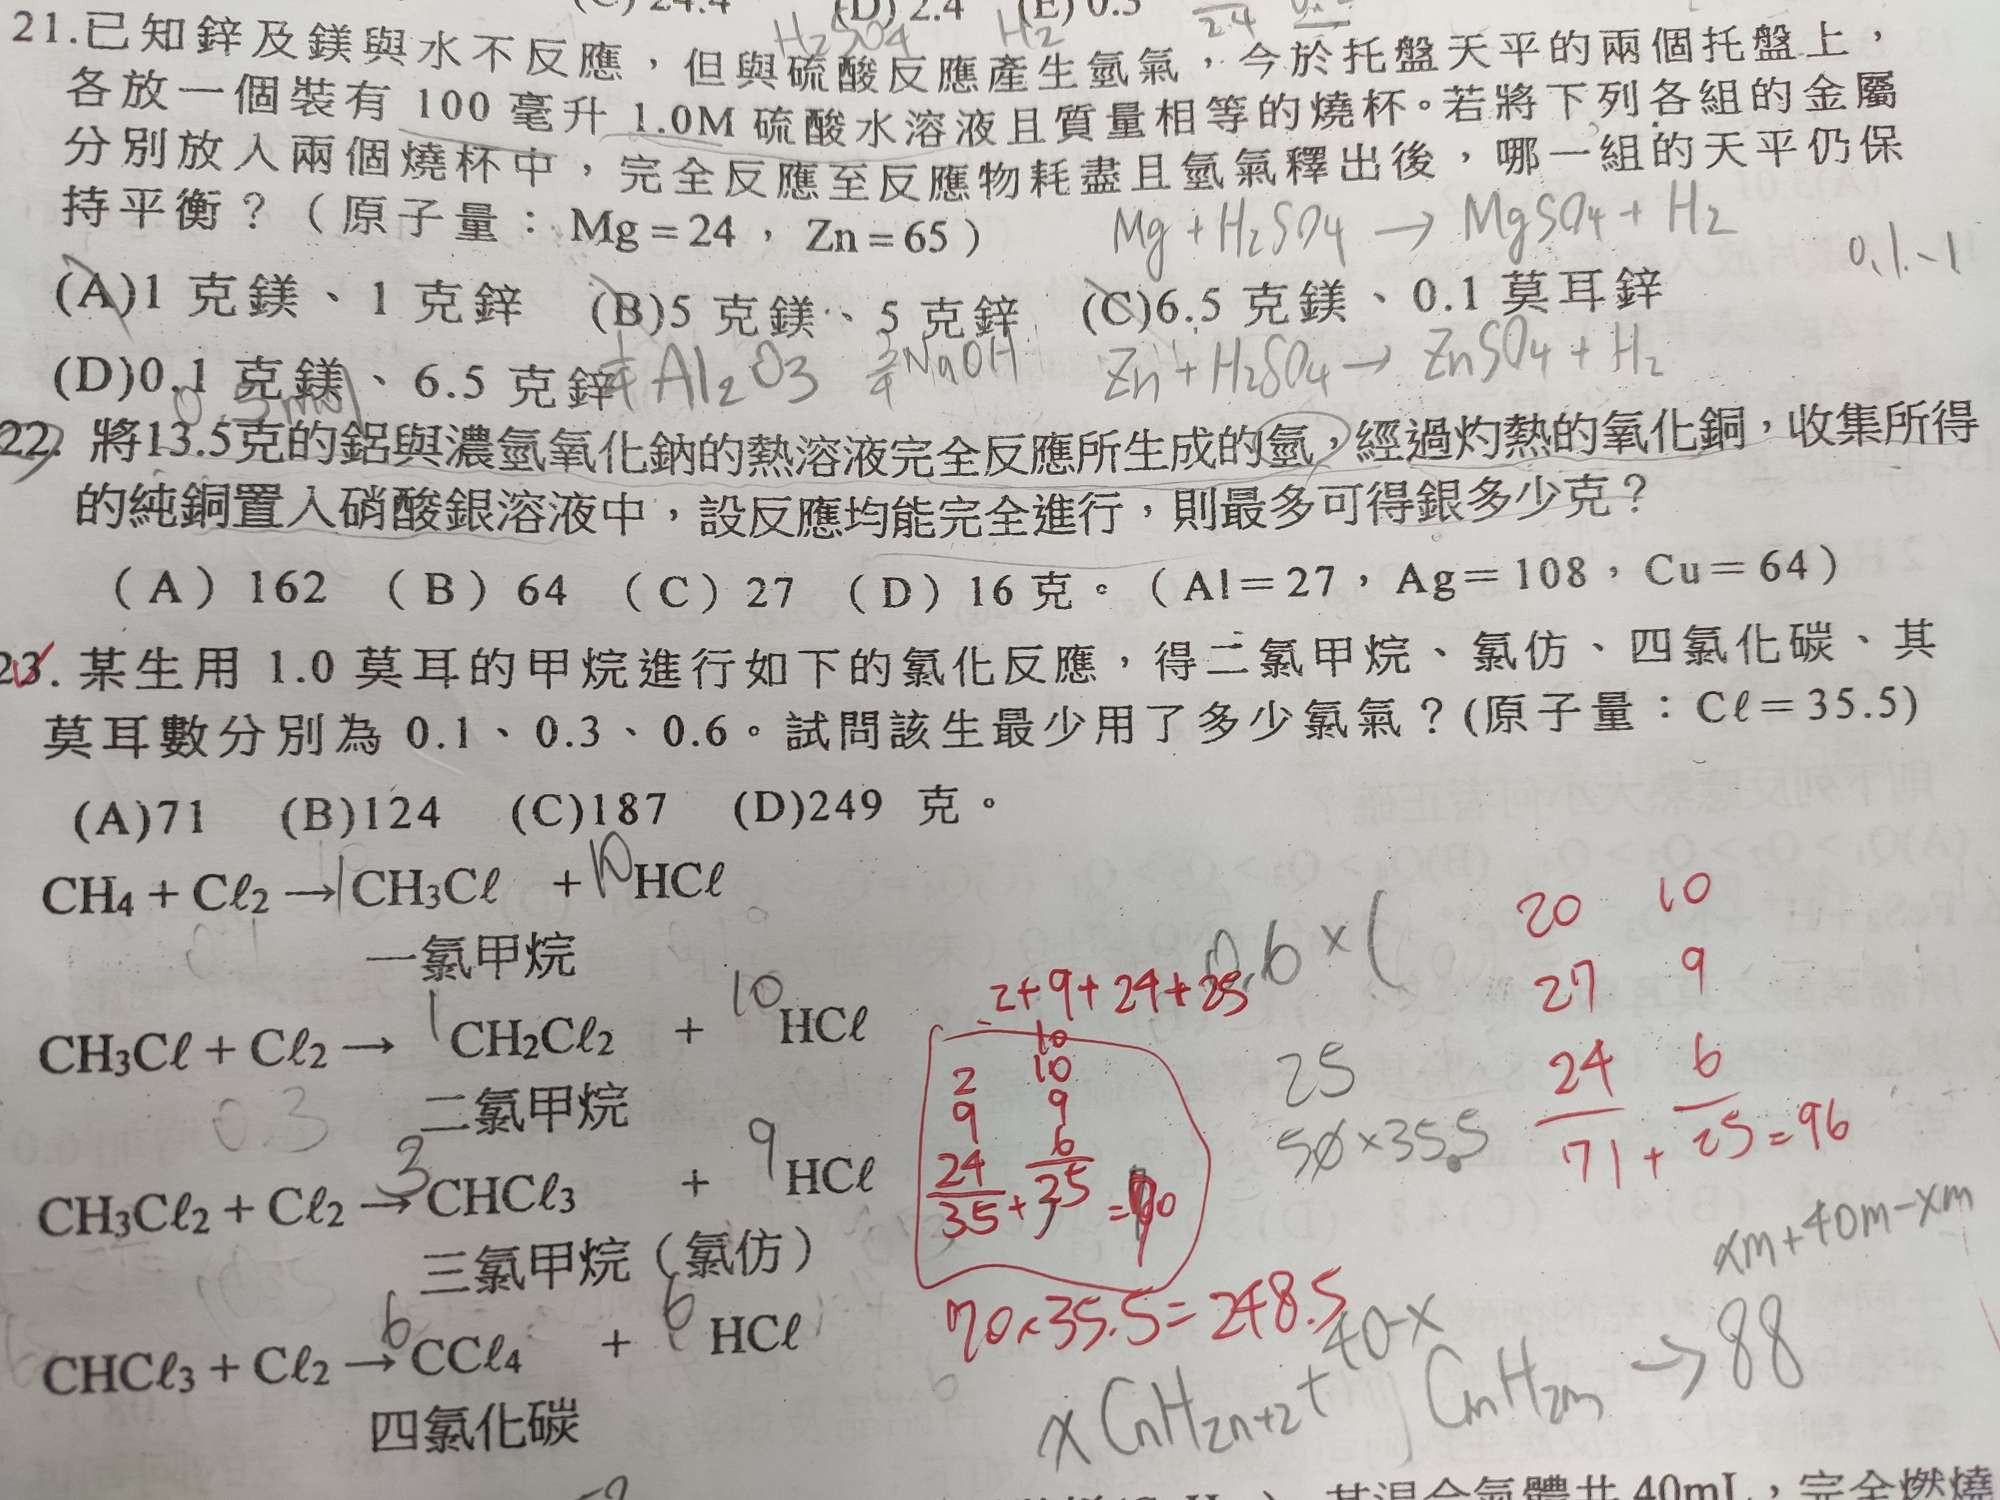 (C) 24.4 (D) 2.4 (E) 0.3
2.4
H₂SO₄ H₂
21.已知鋅及鎂與水不反應，但與硫酸反應產生氫氣，今於托盤天平的兩個托盤上，
各放一個裝有 100 毫升 1.0M 硫酸水溶液且質量相等的燒杯。若將下列各組的金屬
分別放入兩個燒杯中，完全反應至反應物耗盡且氫氣釋出後，哪一組的天平仍保
持平衡？（原子量：Mg＝24，Zn＝65）
Mg + H₂SO₄ → MgSO₄ + H₂
(A)1 克鎂、1 克鋅 (B)5 克鎂、5 克鋅 (C)6.5 克鎂、0.1 莫耳鋅
(D)0.1 克鎂、6.5 克鋅
Al₂O₃ NaOH
Zn + H₂SO₄ → ZnSO₄ + H₂
0.5mol
22. 將13.5克的鋁與濃氫氧化鈉的熱溶液完全反應所生成的氫，經過灼熱的氧化銅，收集所得
的純銅置入硝酸銀溶液中，設反應均能完全進行，則最多可得銀多少克？
（A）162 （B）64 （C）27 （D）16 克。（Al＝27，Ag＝108，Cu＝64）
23. 某生用 1.0 莫耳的甲烷進行如下的氯化反應，得二氯甲烷、氯仿、四氯化碳、其
莫耳數分別為 0.1、0.3、0.6。試問該生最少用了多少氯氣？(原子量：Cℓ＝35.5)
(A)71 (B)124 (C)187 (D)249 克。
CH₄ + Cℓ₂ → 1 CH₃Cℓ + 10 HCℓ
一氯甲烷
CH₃Cℓ + Cℓ₂ → 1 CH₂Cℓ₂ + 10 HCℓ
二氯甲烷
0.3
CH₃Cℓ₂ + Cℓ₂ → 3 CHCℓ₃ + 9 HCℓ
三氯甲烷（氯仿）
CHCℓ₃ + Cℓ₂ → 6 CCℓ₄ + 6 HCℓ
四氯化碳
0.6 × (
2+9+24+25
10
2 10
9 9
24 6
35 + 35 = 70
70×35.5=248.5
25
50×35.5
20 10
27 9
24 6
71 + 25 = 96
xm+40m-xm
40-x
x CnH2n+2 + CmH2m → 88
其混合氣體共 40mL，完全燃燒